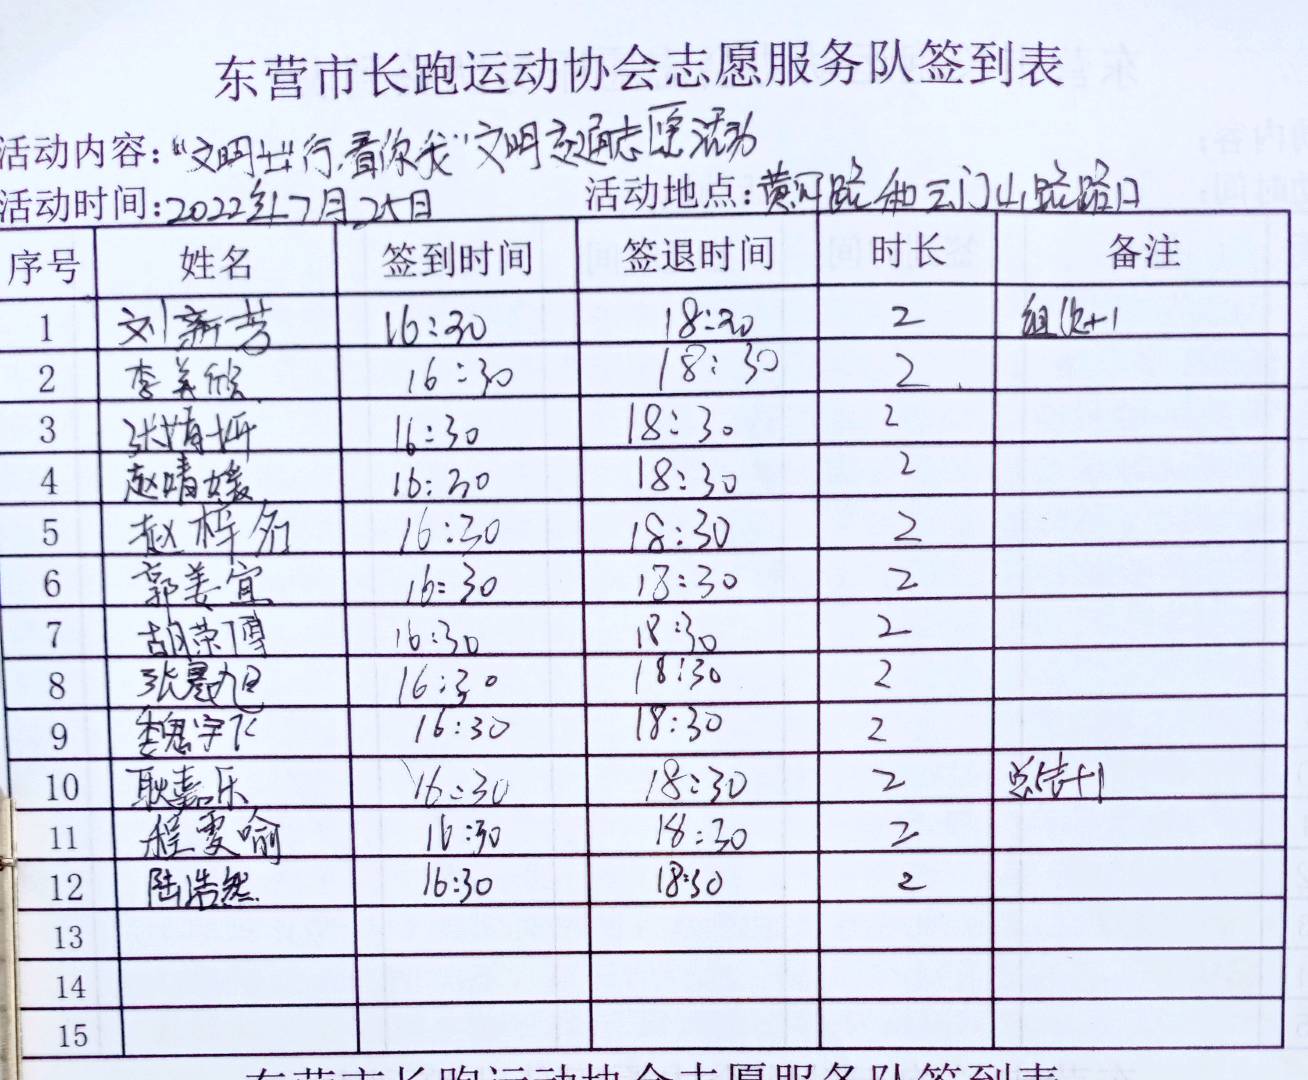 东营市长跑运动协会志愿服务队签到表
活动内容："文明出行,看你我"文明交通志愿活动
活动时间:2022年7月25日 活动地点:黄河路和云门山路路口
序号 姓名 签到时间 签退时间 时长 备注
1 刘新芳 16:30 18:30 2 组织+1
2 李美欣 16:30 18:30 2
3 张婧妍 16:30 18:30 2
4 赵晴媛 16:30 18:30 2
5 赵梓名 16:30 18:30 2
6 郭姜宜 16:30 18:30 2
7 胡荣博 16:30 18:30 2
8 张晨旭 16:30 18:30 2
9 魏宇飞 16:30 18:30 2
10 耿嘉乐 16:30 18:30 2 总结+1
11 程雯喻 16:30 18:30 2
12 陆浩然 16:30 18:30 2
13
14
15
东营市长跑运动协会志愿服务队签到表